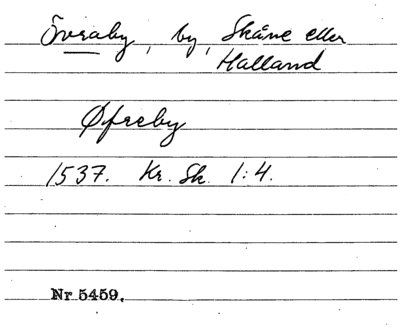 Överaby, by, Skåne eller
Halland
Øfreby
1537. Kr. Sk. 1:4.
Nr 5459.